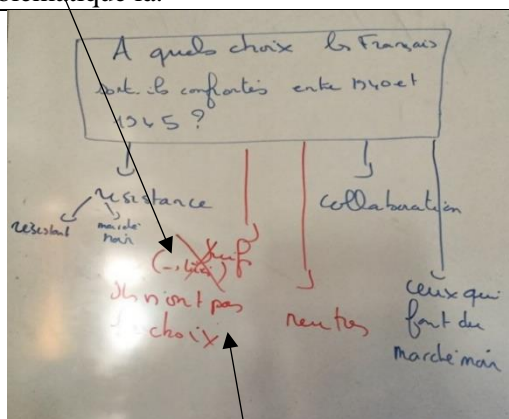 A quels choix les Français
sont ils confrontés entre 1940 et
1945 ?
résistance
collaboration
résistant
marché
noir
juifs
ils n'ont pas
choix
neutres
ceux qui
font du
marché noir